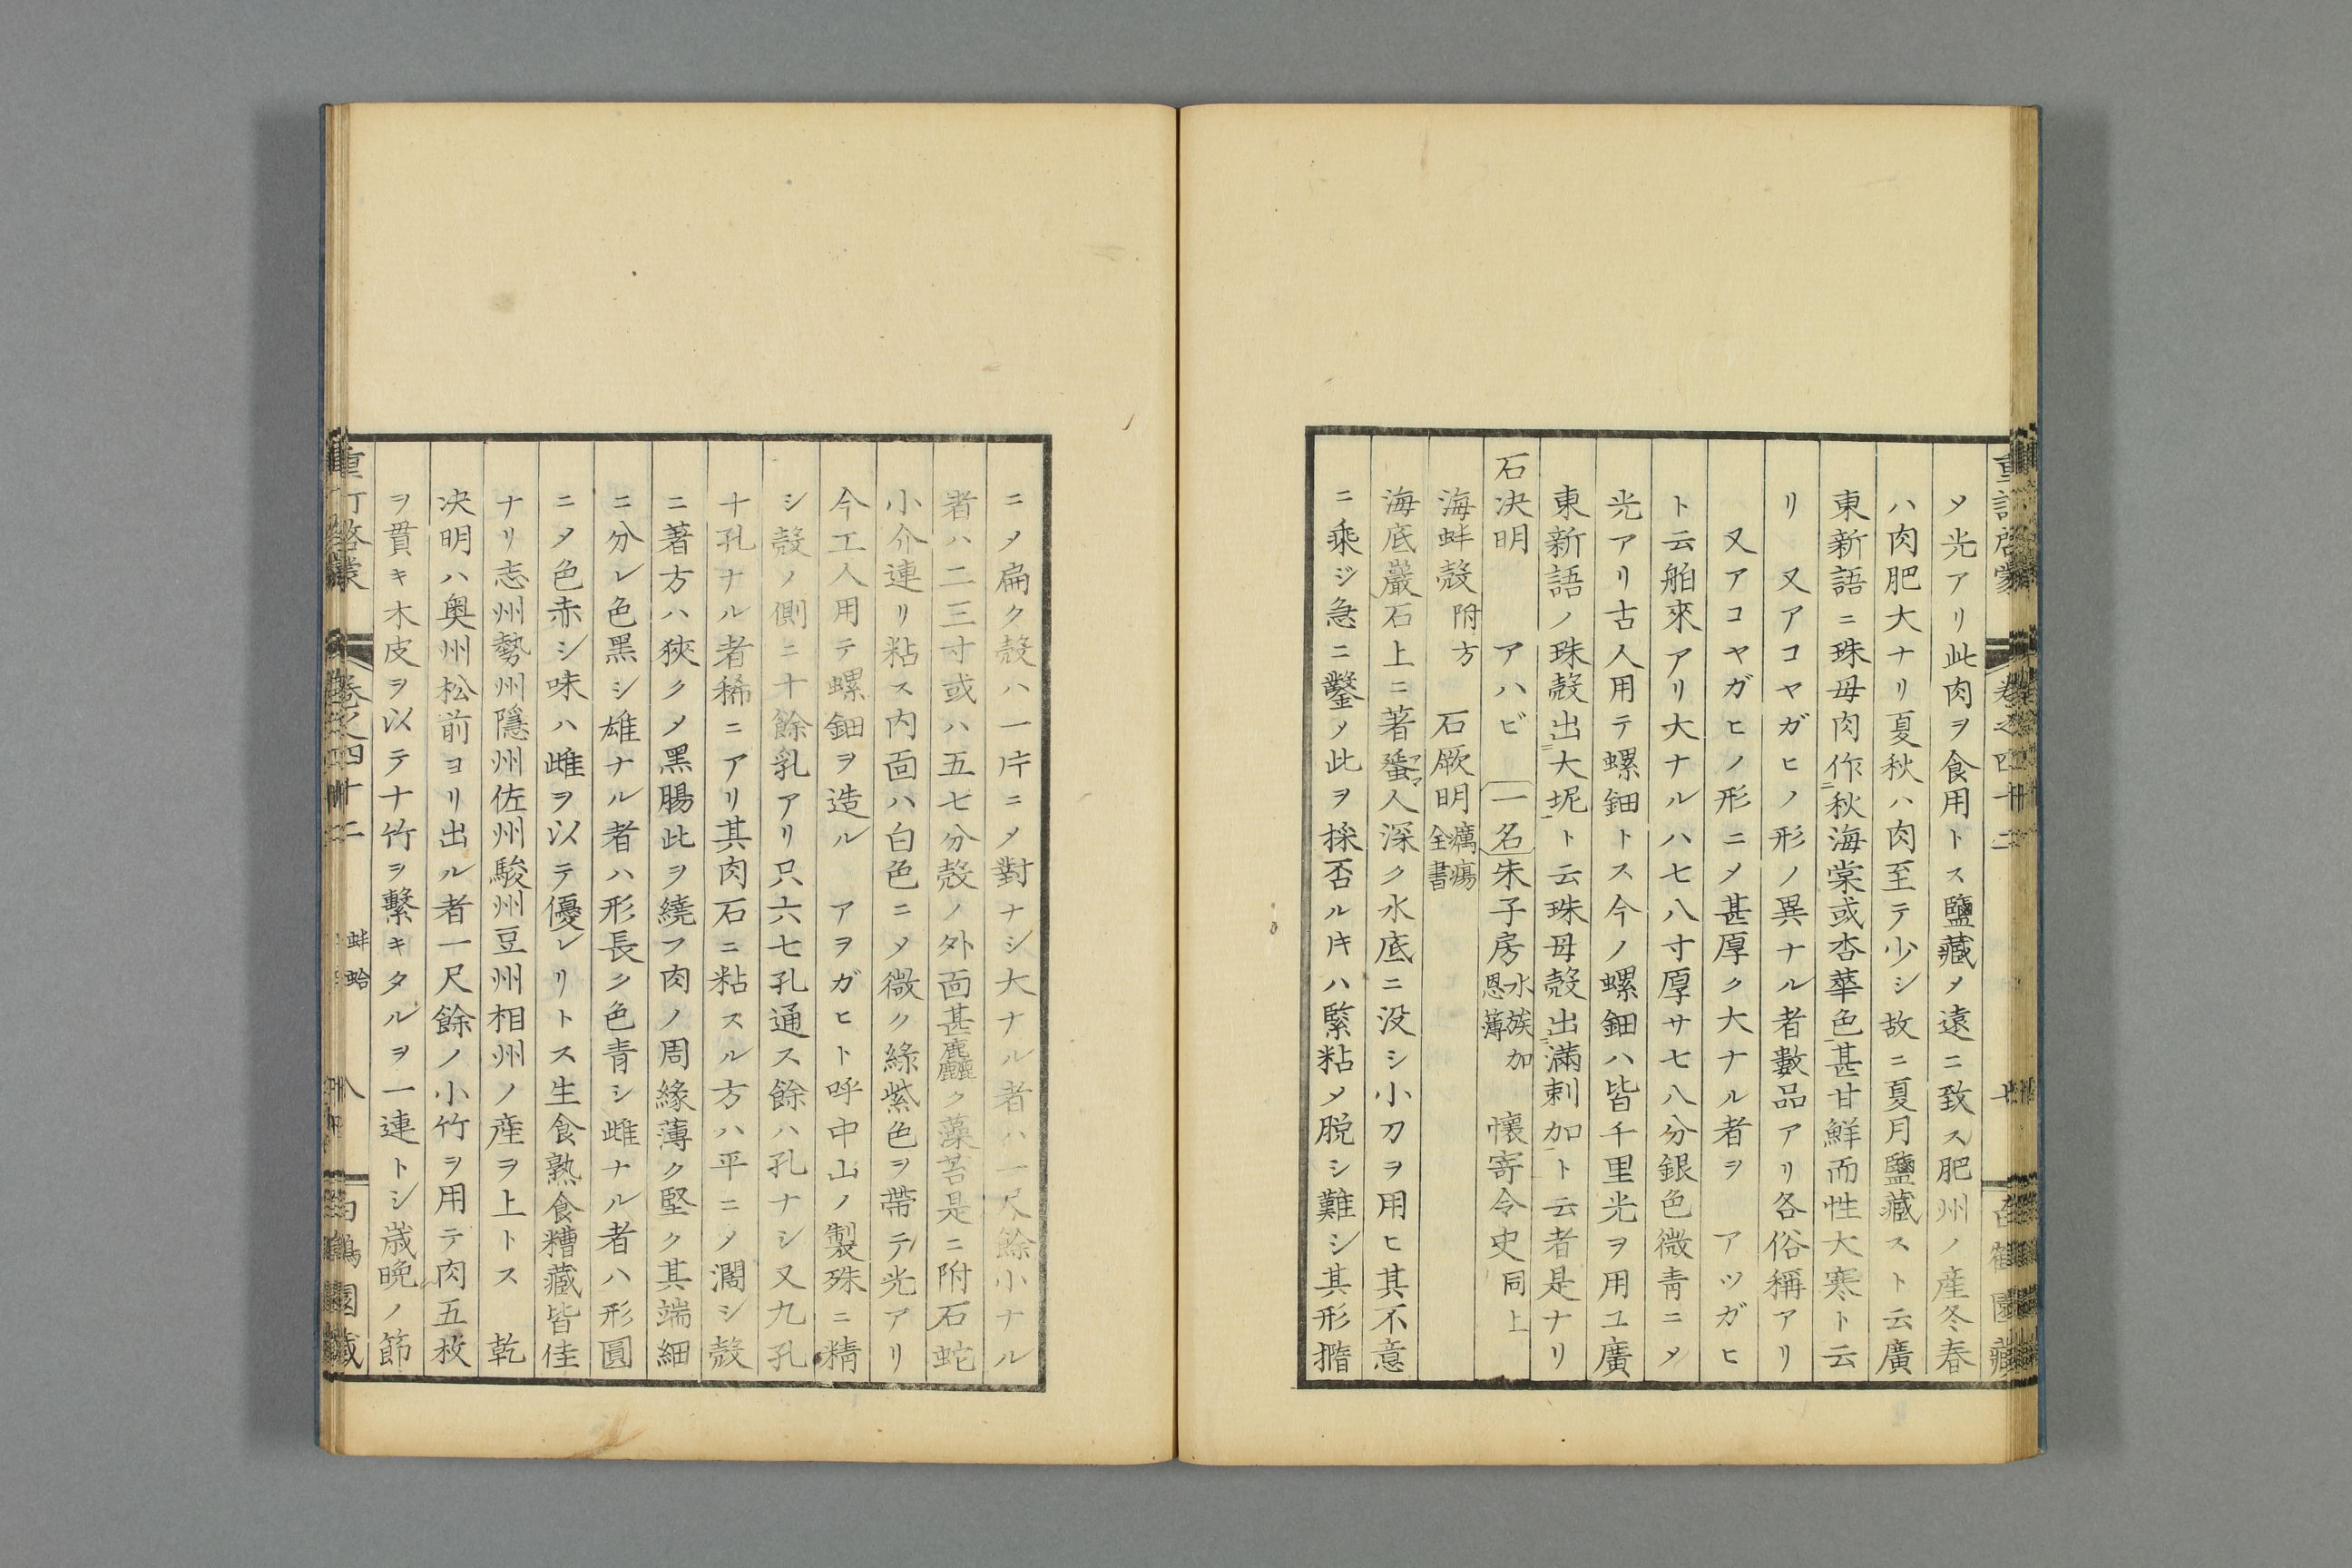 重訂啓蒙 卷之四十二 七
メ光アリ此肉ヲ食用トス鹽藏メ遠ニ致ス肥州ノ産冬春
ハ肉肥大ナリ夏秋ハ肉至テ少シ故ニ夏月鹽藏スト云廣
東新語ニ珠母肉作秋海棠或杏華色甚甘鮮而性大寒ト云
リ 又アコヤガヒノ形ノ異ナル者數品アリ各俗稱アリ
又アコヤガヒノ形ニメ甚厚ク大ナル者ヲ アツガヒ
ト云舶來アリ大ナルハ七八寸厚サ七八分銀色微青ニメ
光アリ古人用テ螺鈿トス今ノ螺鈿ハ皆千里光ヲ用ユ廣
東新語ノ珠殻出大坭ト云珠母殻出滿剌加ト云者是ナリ
石決明 アハビ 一名 朱子房水族加恩薄 懷寄令史同上
海蚌殻附方 石厥明癘瘍全書
海底巖石上ニ著蜑人深ク水底ニ没シ小刀ヲ用ヒ其不意
ニ乘ジ急ニ鑿メ此ヲ採否ルキハ緊粘メ脱シ難シ其形撱
ニメ扁ク殻ハ一片ニメ對ナシ大ナル者ハ一尺餘小ナル
者ハ二三寸或ハ五七分殻ノ外面甚麤ク藻苔是ニ附石蛇
小介連リ粘ス内面ハ白色ニメ微ク綠紫色ヲ帶テ光アリ
今工人用テ螺鈿ヲ造ル アヲガヒト呼中山ノ製殊ニ精
シ殻ノ側ニ十餘乳アリ只六七孔通ス餘ハ孔ナシ又九孔
十孔ナル者稀ニアリ其肉石ニ粘スル方ハ平ニメ濶シ殻
ニ著方ハ狹クメ黑腸此ヲ繞フ肉ノ周緣薄ク堅ク其端細
ニ分レ色黑シ雄ナル者ハ形長ク色青シ雌ナル者ハ形圓
ニメ色赤シ味ハ雌ヲ以テ優レリトス生食熟食糟藏皆佳
ナリ志州勢州隱州佐州駿州豆州相州ノ産ヲ上トス 乾
決明ハ奥州松前ヨリ出ル者一尺餘ノ小竹ヲ用テ肉五枚
ヲ貫キ木皮ヲ以テ十竹ヲ繫キタルヲ一連トシ歳晩ノ節
重訂啓蒙 卷之四十二 蚌蛤 八